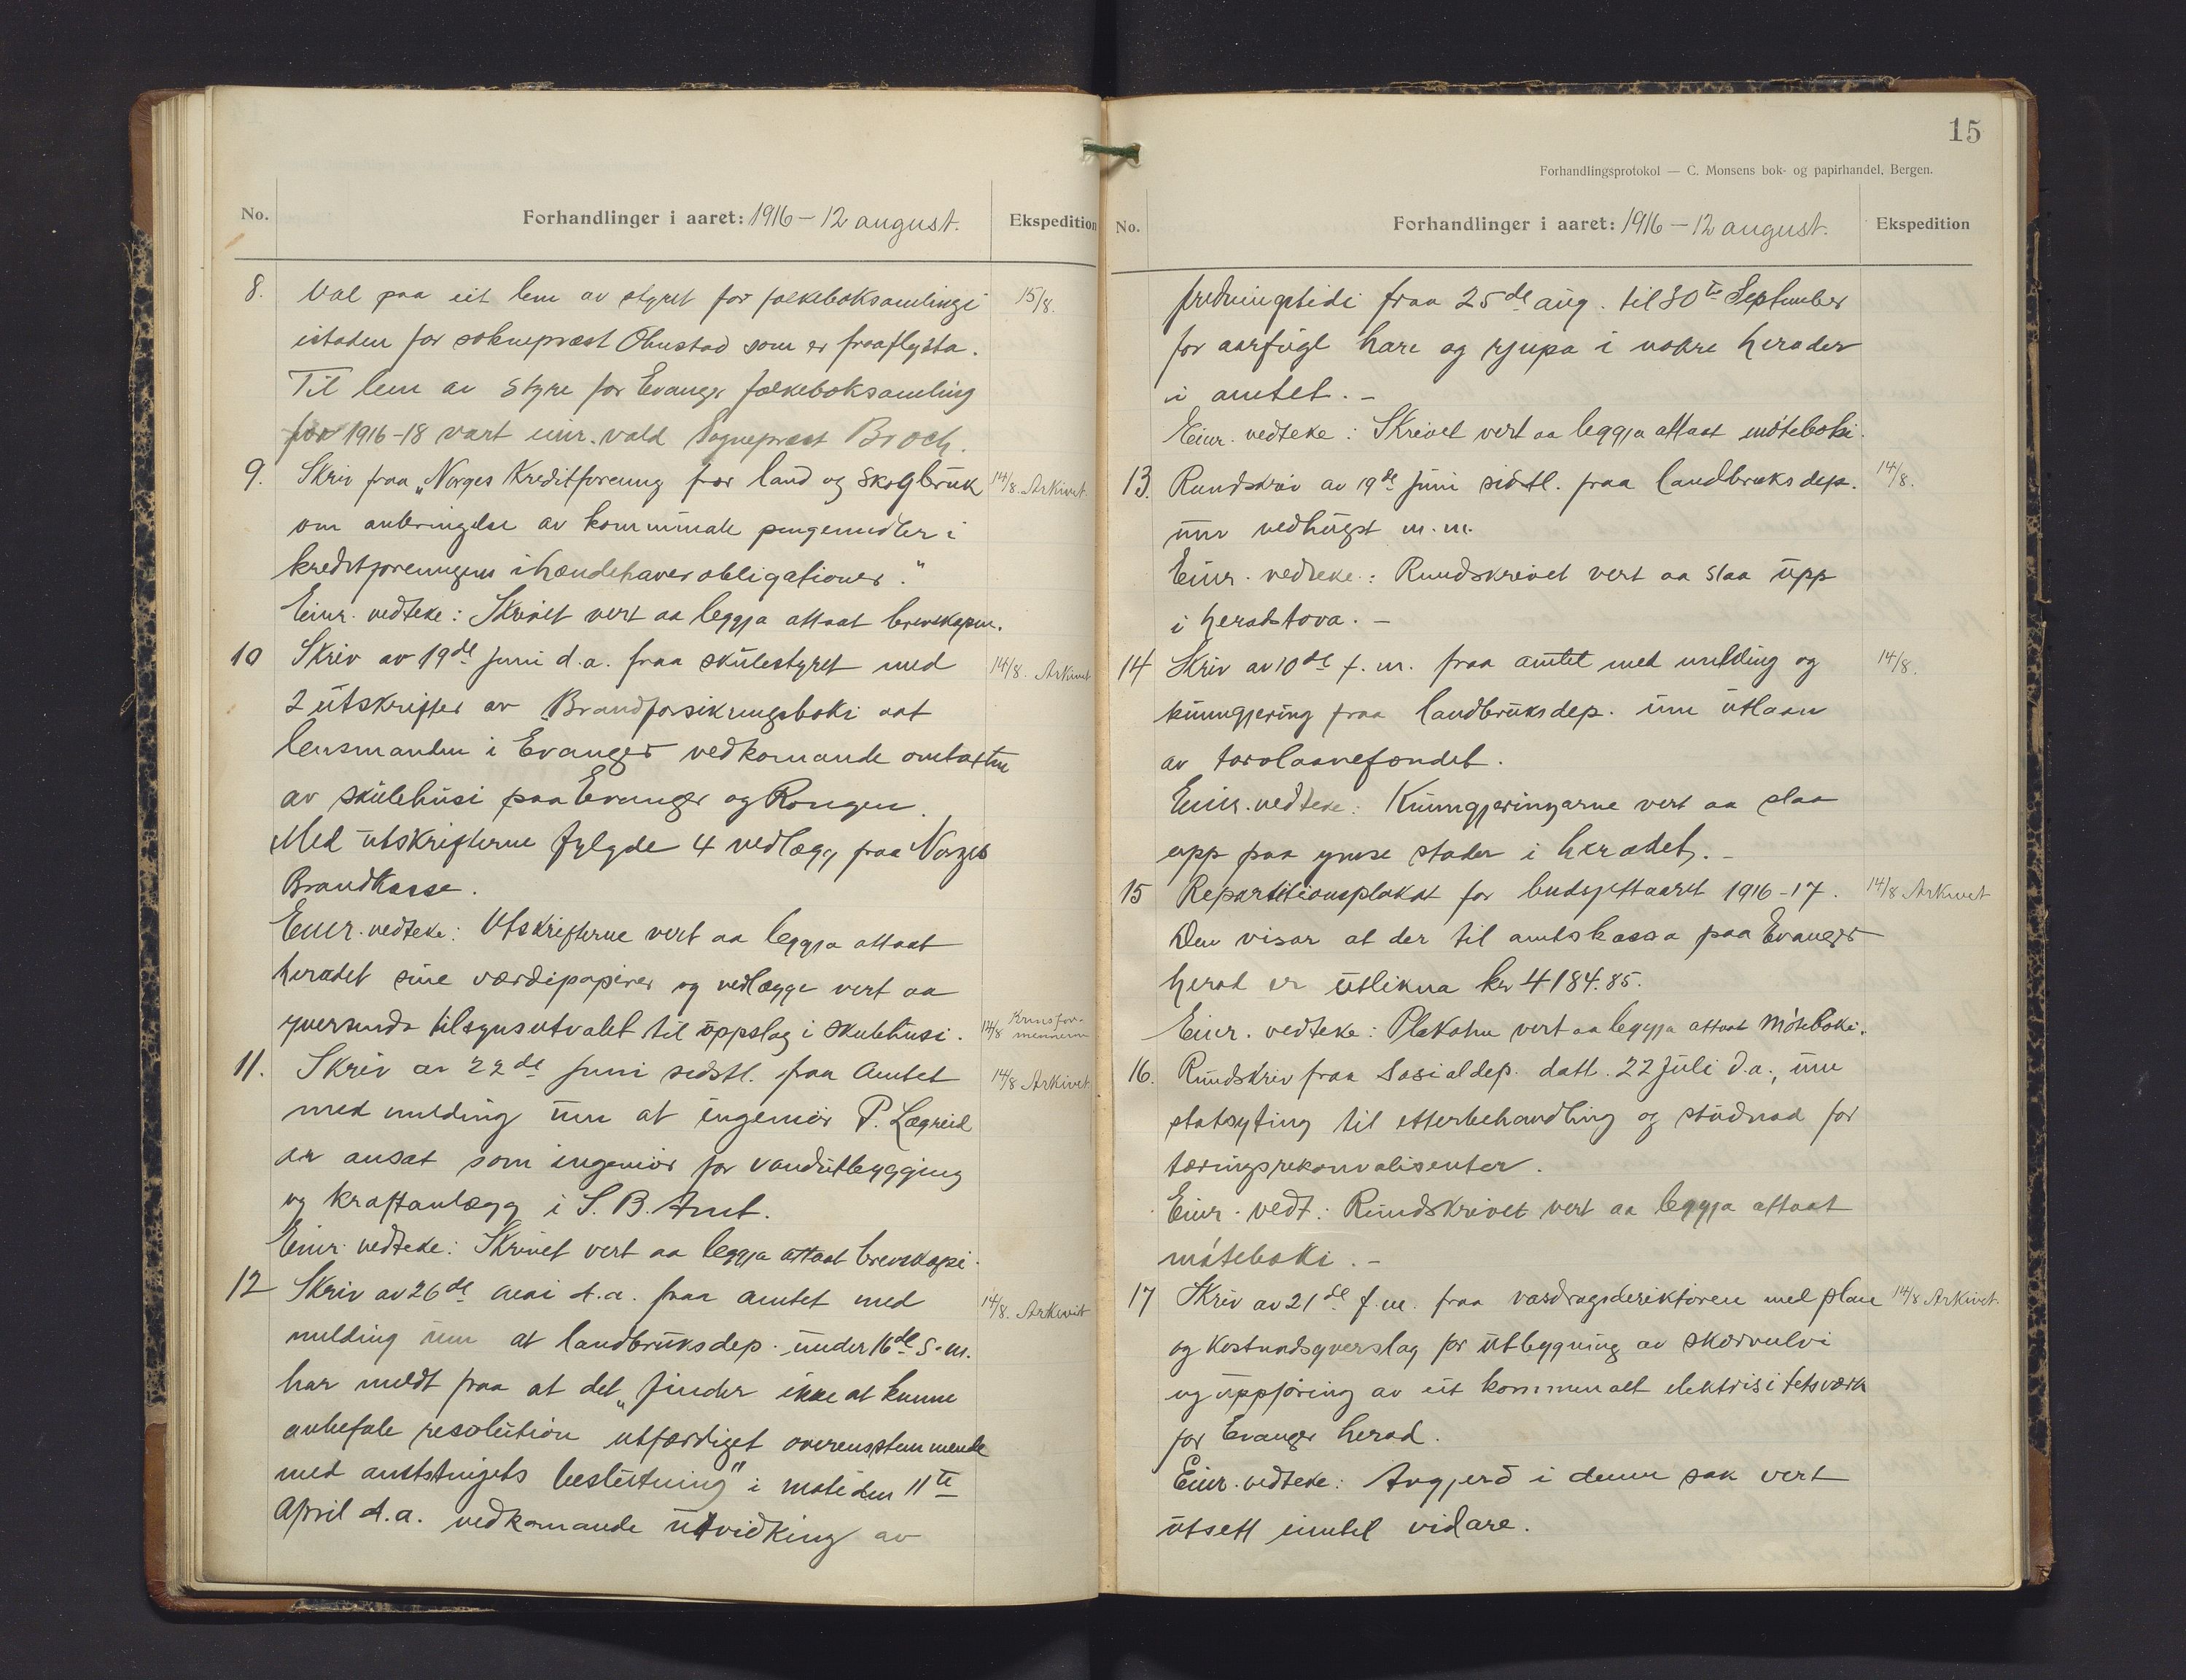 No.
Forhandlinger i aaret: 1916 – 12 august.
Ekspedition
8. Val paa eit lem av styret for folkeboksamlingi 15/8.
istaden for sokneprest Ohnstad som er fraaflytta.
Til lem av styre for Evanger folkeboksamling
for 1916-18 vart einr. vald Sogneprest Broch.
9. Skriv fraa „Norges Kreditforening for land og skogbruk 14/8. Arkivet
om anbringelse av kommunale pengemidler i
kreditforeningens ihændehaverobligationer."
Einr. vedteke: Skrivet vert aa leggja attaat brevskapen.
10 Skriv av 19de juni d.a. fraa skulestyret med 14/8. Arkivet
2 utskrifter av Brandforsikringsboki aat
lensmanden i Evanger vedkomande omtaxtne
av skulehusi paa Evanger og Rongen.
Med utskrifterne fylgde 4 vedlægg fraa Norges
Brandkasse.
Einr. vedteke: Utskrifterne vert aa leggja attaat
heradet sine værdipapirer og vedlægge vert aa
yversenda tilsynsutvalet til uppslag i skulehusi. 14/8 Krinsfor-
mennerne
11. Skriv av 22de juni sidstl. fraa Amtet 14/8 Arkivet
med melding um at ingeniør P. Lægreid
er ansat som ingeniør for vandutbyggjing
og kraftanlægg i S. B. Amt.
Einr. vedteke: Skrivet vert aa leggja attaat brevskapi.
12 Skriv av 26de mai d.a. fraa amtet med 14/8. Arkivet
melding um at landbruksdep. under 16de s.m.
har meldt fraa at det „finder ikke at kunne
anbefale resolution utfærdiget overensstemmende
med amtstingets beslutning" i møte den 11te
April d.a. vedkomande utvidking av
15
Forhandlingsprotokol — C. Monsens bok- og papirhandel, Bergen.
No.
Forhandlinger i aaret: 1916 – 12 august.
Ekspedition
fredningstidi fraa 25de aug. til 30te September
for aarfugl hare og rjupa i nokre herader
i amtet. –
Einr. vedteke: Skrivet vert aa leggja attaat møteboki.
13. Rundskriv av 19de juni sidstl. fraa landbruksdep. 14/8.
um vedhugst m.m.
Einr. vedteke: Rundskrivet vert aa slaa upp
i heradstova. –
14 Skriv av 10de f.m. fraa amtet med melding og 14/8.
kunngjering fraa landbruksdep. um utlaan
av torvlaanefondet.
Einr. vedteke: Kunngjeringarne vert aa slaa
upp paa ymse stader i heradet. –
15 Repartitionsplakat for budsjettaaret 1916-17. 14/8 Arkivet
Den visar at der til amtskassa paa Evanger
herad er utlikna kr 4184.85.
Einr. vedteke: Plakaten vert aa leggja attaat møteboki.
16. Rundskriv fraa Sosialdep. datt. 22 juli d.a., um
statsyting til etterbehandling og studnad for
tæringsrekonvalisenter.
Einr. vedt.: Rundskrivet vert aa leggja attaat
møteboki. –
17 Skriv av 21de f.m. fraa vasdragsdirektøren med plan 14/8 Arkivet.
og kostnadsyverslag for utbygning av skorvelvi
og uppføring av eit kommunalt elektrisitetsværk
for Evanger herad.
Einr. vedteke: Avgjerd i denne sak vert
utsett inntil vidare.